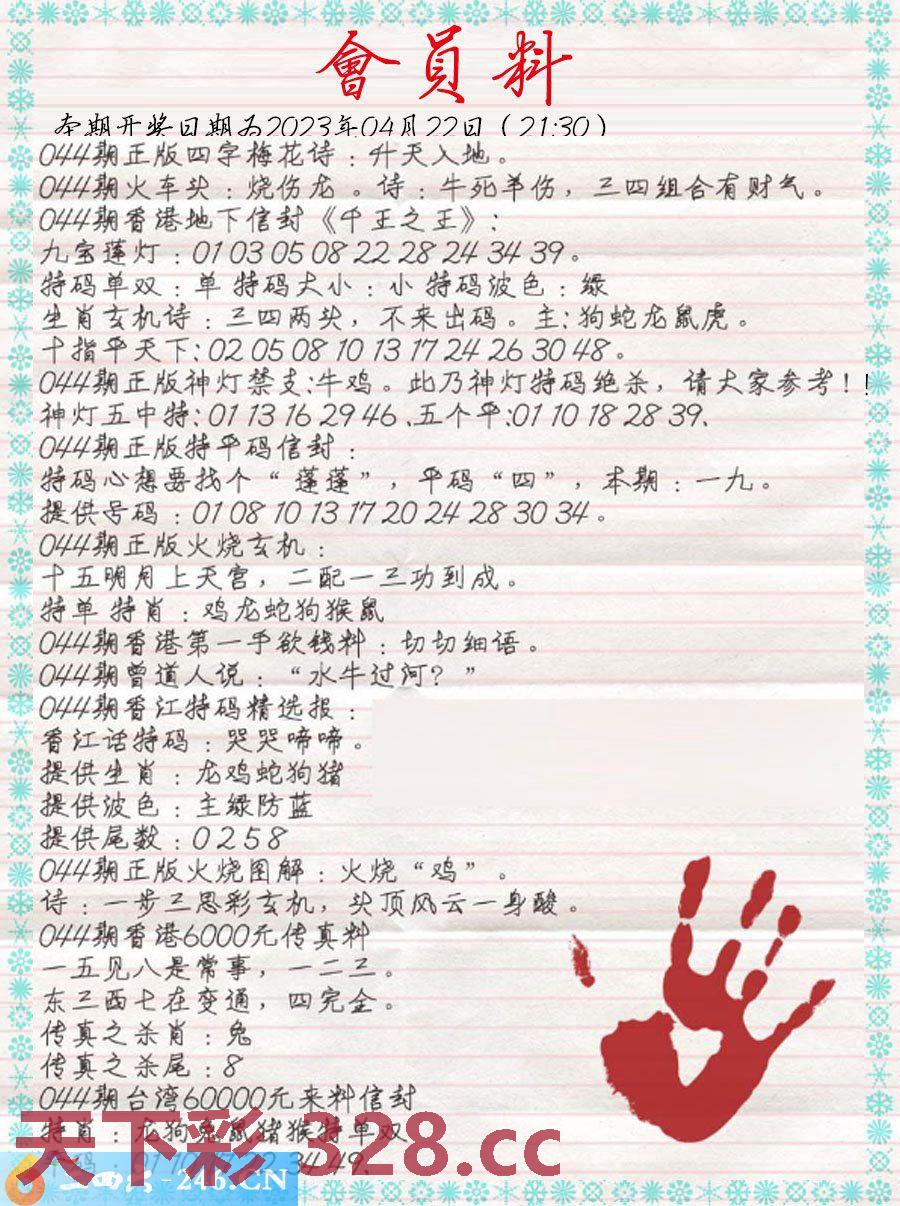 會員料
本期开奖日期为2023年04月22日（21:30）
044期正版四字梅花诗：升天入地。
044期火车头：烧伤龙。诗：牛死羊伤，三四组合有财气。
044期香港地下信封《千王之王》：
九宝莲灯：01 03 05 08 22 28 24 34 39。
特码单双：单 特码大小：小 特码波色：绿
生肖玄机诗：三四两头，不来出码。主：狗蛇龙鼠虎。
十指平天下：02 05 08 10 13 17 24 26 30 48。
044期正版神灯禁支：牛鸡。此乃神灯特码绝杀，请大家参考！！
神灯五中特：01 13 16 29 46、五个平：01 10 18 28 39、
044期正版特平码信封：
特码心想要找个“蓬蓬”，平码“四”，本期：一九。
提供号码：01 08 10 13 17 20 24 28 30 34。
044期正版火烧玄机：
十五明月上天宫，二配一三功到成。
特单 特肖：鸡龙蛇狗猴鼠
044期香港第一手欲钱料：切切细语。
044期曾道人说：“水牛过河？”
044期香江特码精选报：
香江话特码：哭哭啼啼。
提供生肖：龙鸡蛇狗猪
提供波色：主绿防蓝
提供尾数：0 2 5 8
044期正版火烧图解：火烧“鸡”。
诗：一步三思彩玄机，头顶风云一身酸。
044期香港6000元传真料
一五见八是常事，一二三。
东三西七在变通，四完金。
传真之杀肖：兔
传真之杀尾：8
044期台湾60000元来料信封
特肖：龙狗兔鼠猪猴特单双
天下彩 328.cc
34 49、
二四六-246.CN